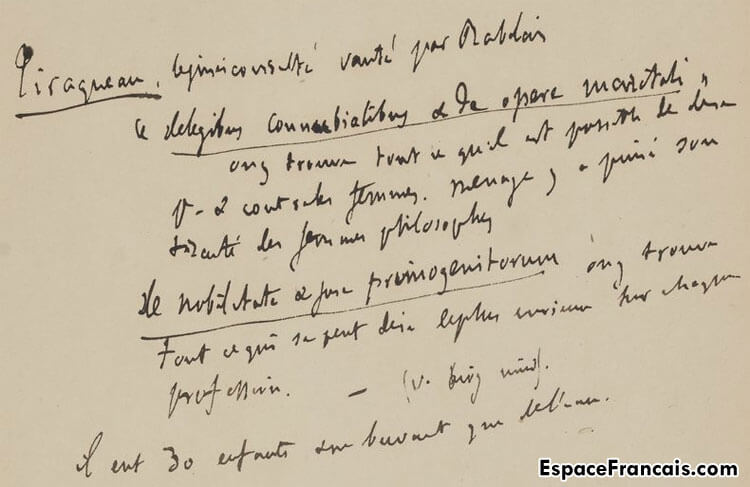 Tiraqueau, lejurisconsulte vanté par Rabelais
le delegibus connubialibus & de opere maritali,
ony trouve tout ce qu'il est possible de dire
p- & contre les femmes. menage y a puisé son
traité des femmes philosophes
de nobilitate & jure primogenitorum ony trouve
tout ce qui se peut dire leplus curieux sur chaque
profession. — (v. biog univ).
il eut 30 enfants en ne buvant que del'eau.
EspaceFrancais.com